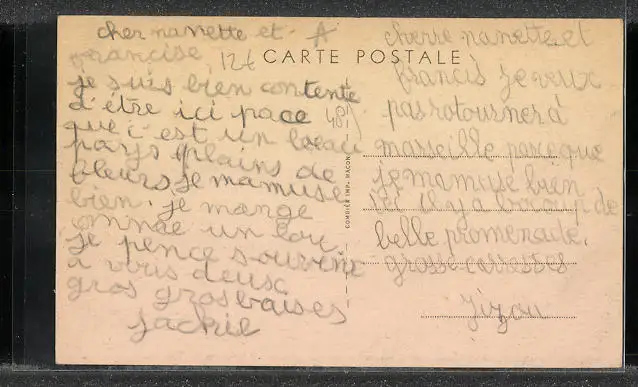 cher nanette et A
francise 12€
CARTE POSTALE
je suis bien contente
d'être ici pace 48
que c'est un beau
pays plains de
fleurs je mamuse
bien. je mange
comme un lou
je pence souvent
a vous deux
gros gros baises
Jackie
COMBIER IMP. MACON
cherre nanette et
francis je veux
pas rotourner à
marseille parceque
je mamuse bien
ici il y a bocoup de
belle promenade.
grosse caresses
Zizou